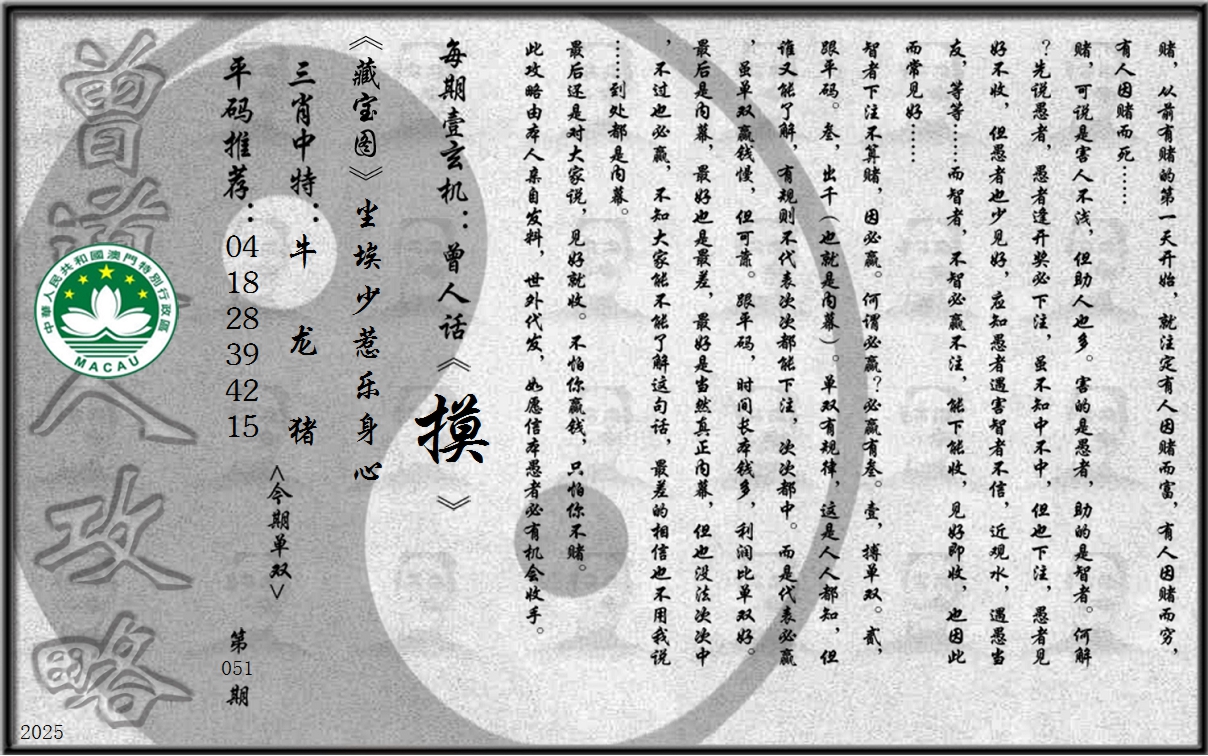 赌，从前有赌的第一天开始，就注定有人因赌而富，有人因赌而穷，
有人因赌而死……
赌，可说是害人不浅，但助人也多。害的是愚者，助的是智者。何解
？先说愚者，愚者逢开奖必下注，虽不知中不中，但也下注，愚者见
好不收，但愚者也少见好，应知愚者遇害智者不信，近观水，遇愚当
友，等等……而智者，不智必赢不注，能下能收，见好即收，也因此
而常见好……
智者下注不算赌，因必赢。何谓必赢？必赢有叁。壹，搏单双。贰，
跟平码。叁，出千（也就是内幕）。单双有规律，这是人人都知，但
谁又能了解，有规则不代表次次都能下注，次次都中。而是代表必赢
，虽单双赢钱慢，但可靠。跟平码，时间长本钱多，利润比单双好。
最后是内幕，最好也是最差，最好是当然真正内幕，但也没法次次中
，不过也必赢，不知大家能不能了解这句话，最差的相信也不用我说
……到处都是内幕。
最后还是对大家说，见好就收。不怕你赢钱，只怕你不赌。
此攻略由本人亲自发料，世外代发，如愿信本愚者必有机会收手。
每期壹玄机：曾人话《摸》
《藏宝图》尘埃少惹乐身心
三肖中特：牛 龙 猪
<今期单双>
平码推荐：04 18 28 39 42 15
第051期
曾道人攻略
中華人民共和國澳門特別行政區
MACAU
2025